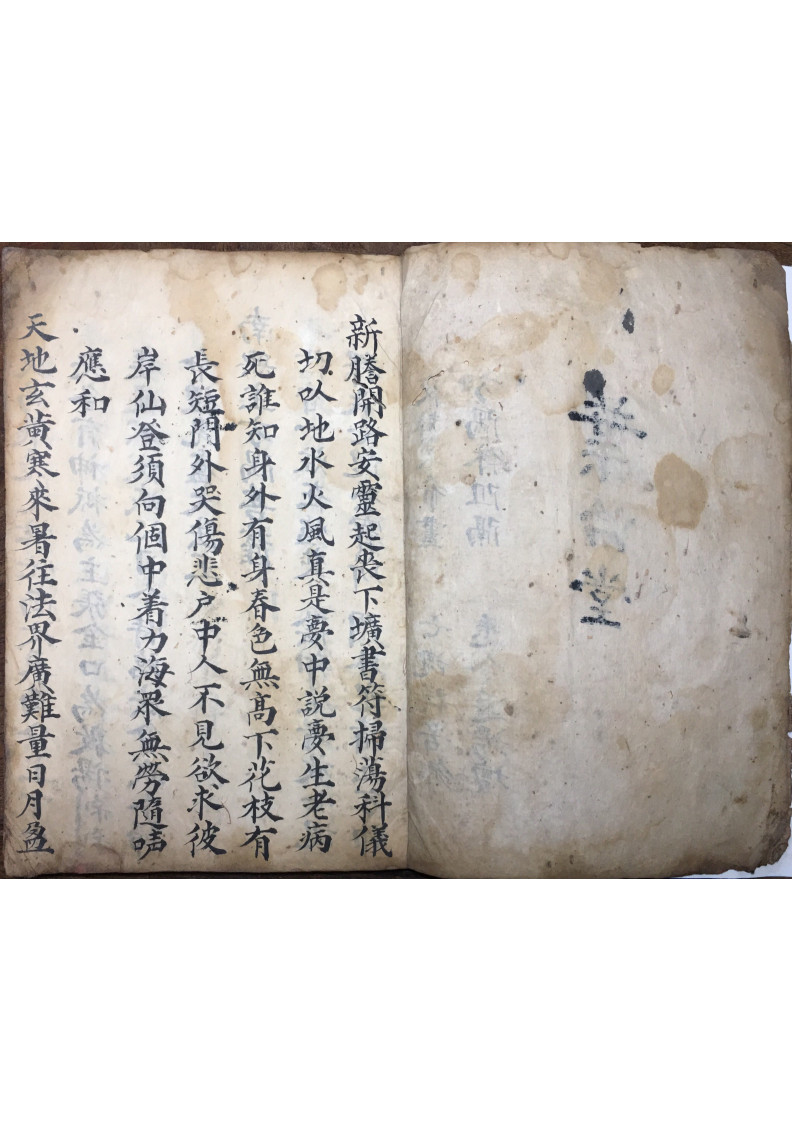 堂
新謄開路安靈起丧下壙書符掃蕩科儀
切以地水火風真是夢中説夢生老病
死誰知身外有身春色無髙下花枝有
長短門外哭傷悲户中人不見欲求彼
岸仙登須向個中着力海眾無勞隨
應和
天地玄黃寒來暑往法界廣難量日月盈